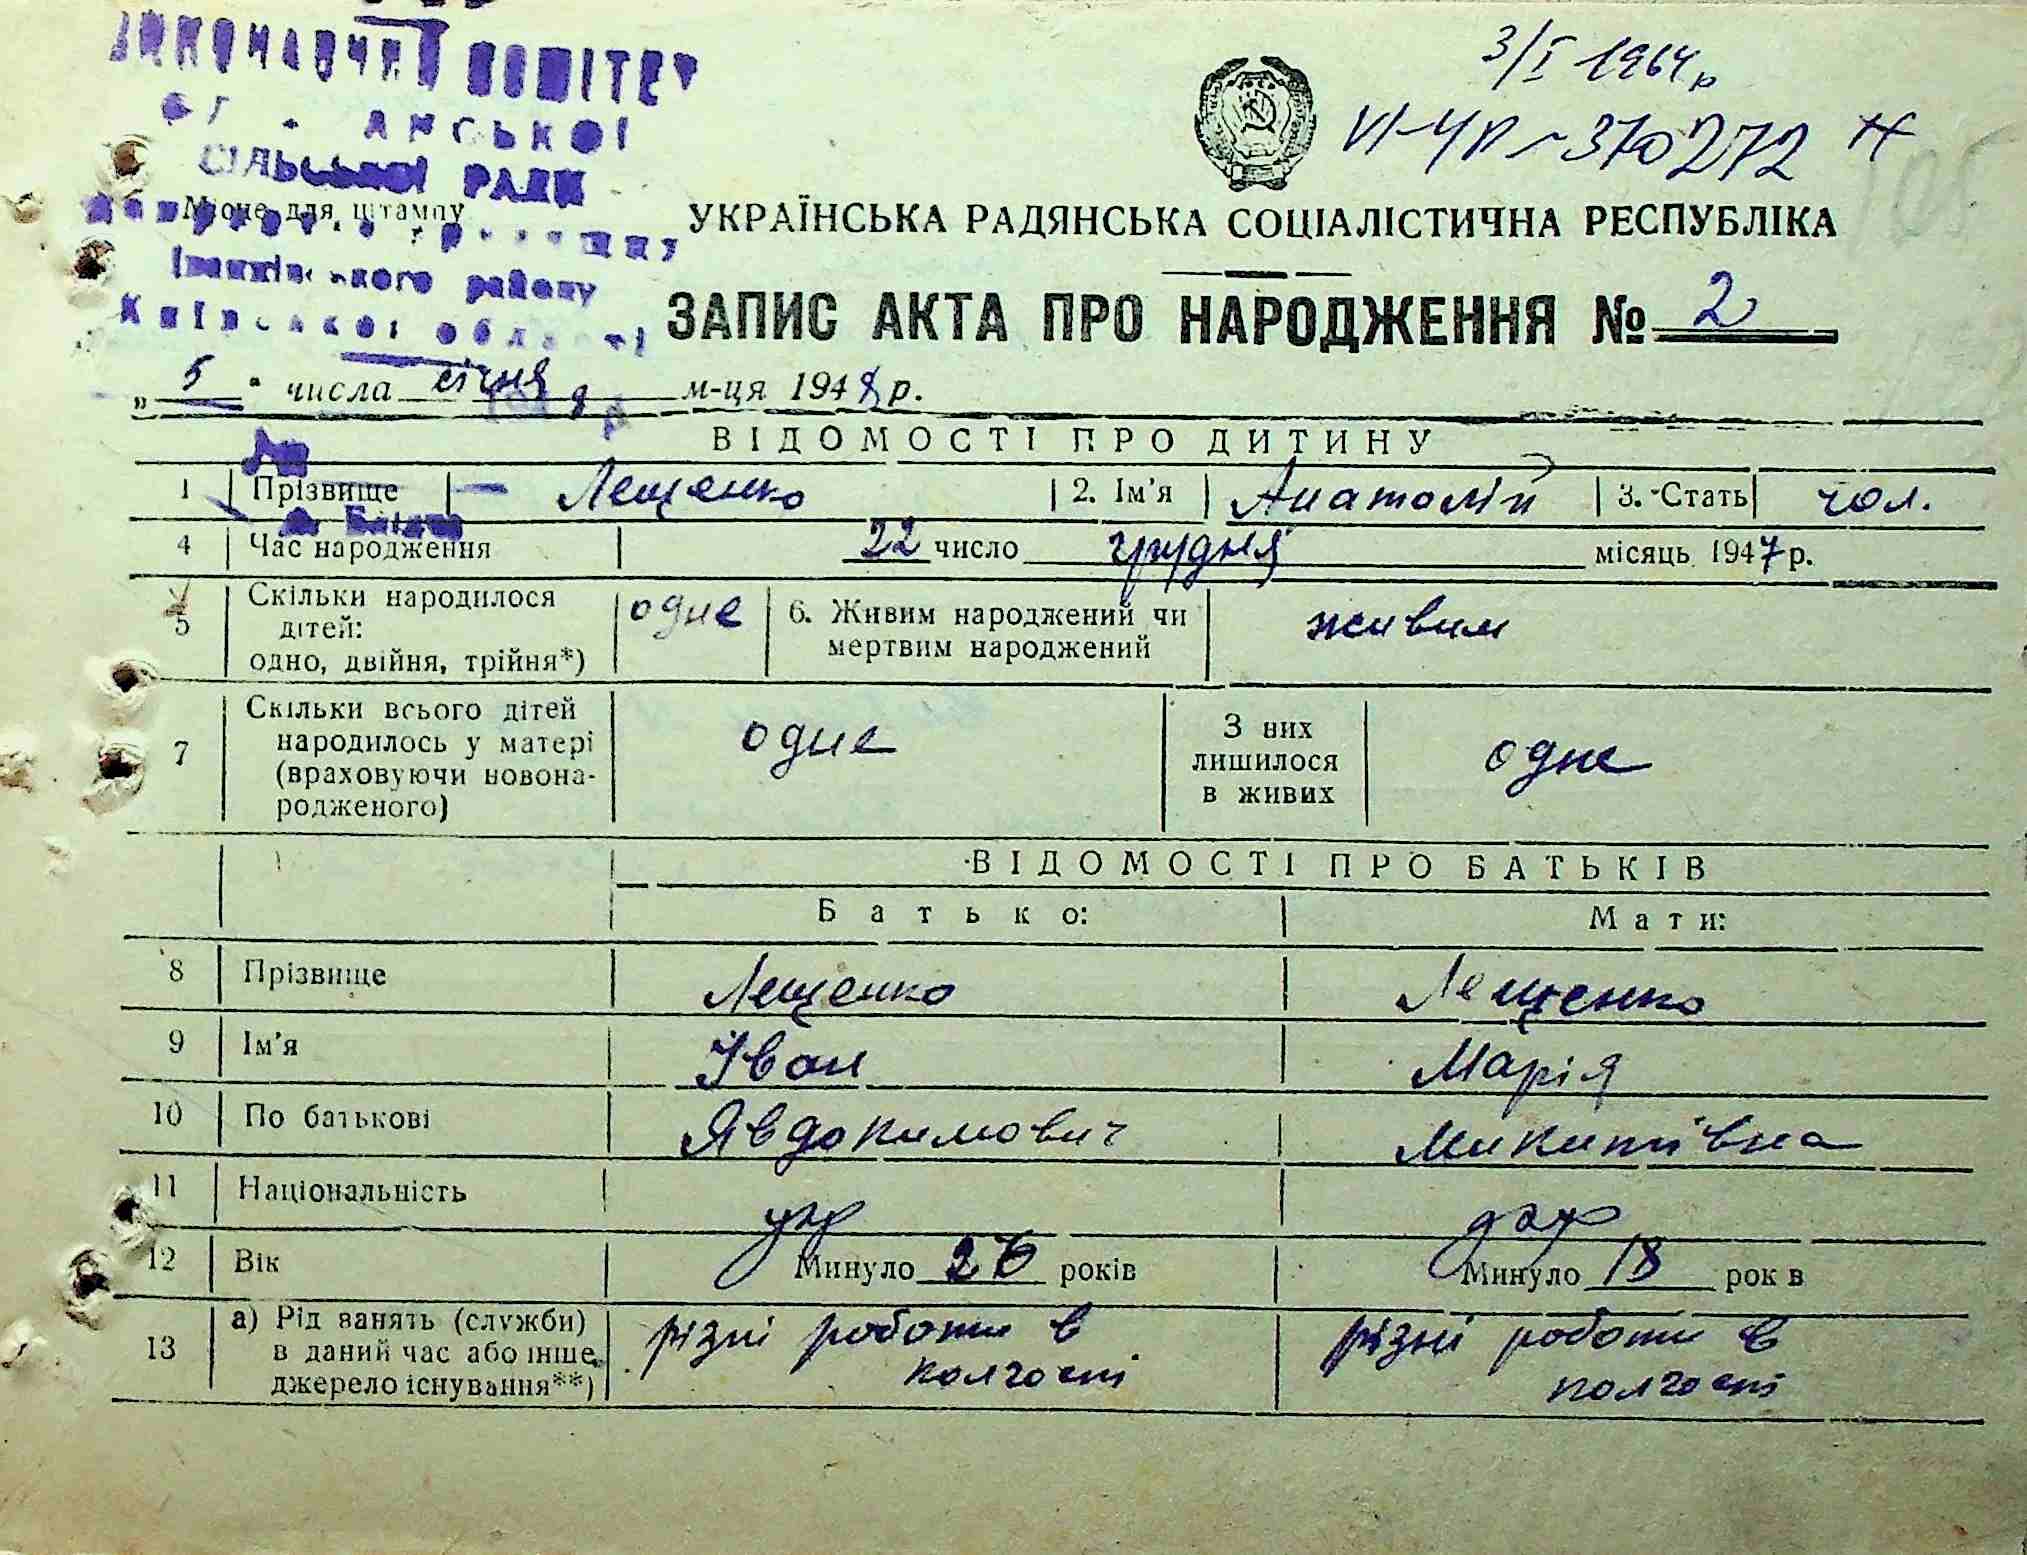 ВИКОНАВЧИЙ КОМІТЕТ
СІЛЬСЬКОЇ РАДИ
Місце для штампу
Іванківського району
Київської області
3/I 1964 р
VI-УР - 370272
УКРАЇНСЬКА РАДЯНСЬКА СОЦІАЛІСТИЧНА РЕСПУБЛІКА
ЗАПИС АКТА ПРО НАРОДЖЕННЯ № 2
„ 5 " числа січня м-ця 1948 р.
ВІДОМОСТІ ПРО ДИТИНУ
1 Прізвище Лещенко 2. Ім'я Анатолій 3. Стать чол.
4 Час народження 22 число грудня місяць 1947 р.
5 Скільки народилося дітей: одно, двійня, трійня*) одне 6. Живим народжений чи мертвим народжений живим
7 Скільки всього дітей народилось у матері (враховуючи новона-родженого) одне З них лишилося в живих одне
ВІДОМОСТІ ПРО БАТЬКІВ
Батько: Мати:
8 Прізвище Лещенко Лещенко
9 Ім'я Іван Марія
10 По батькові Явдокимович Микитівна
11 Національність укр
12 Вік Минуло 26 років Минуло 18 рок в
13 а) Рід занять (служби) в даний час або інше джерело існування**) різні роботи в колгоспі різні роботи в колгоспі